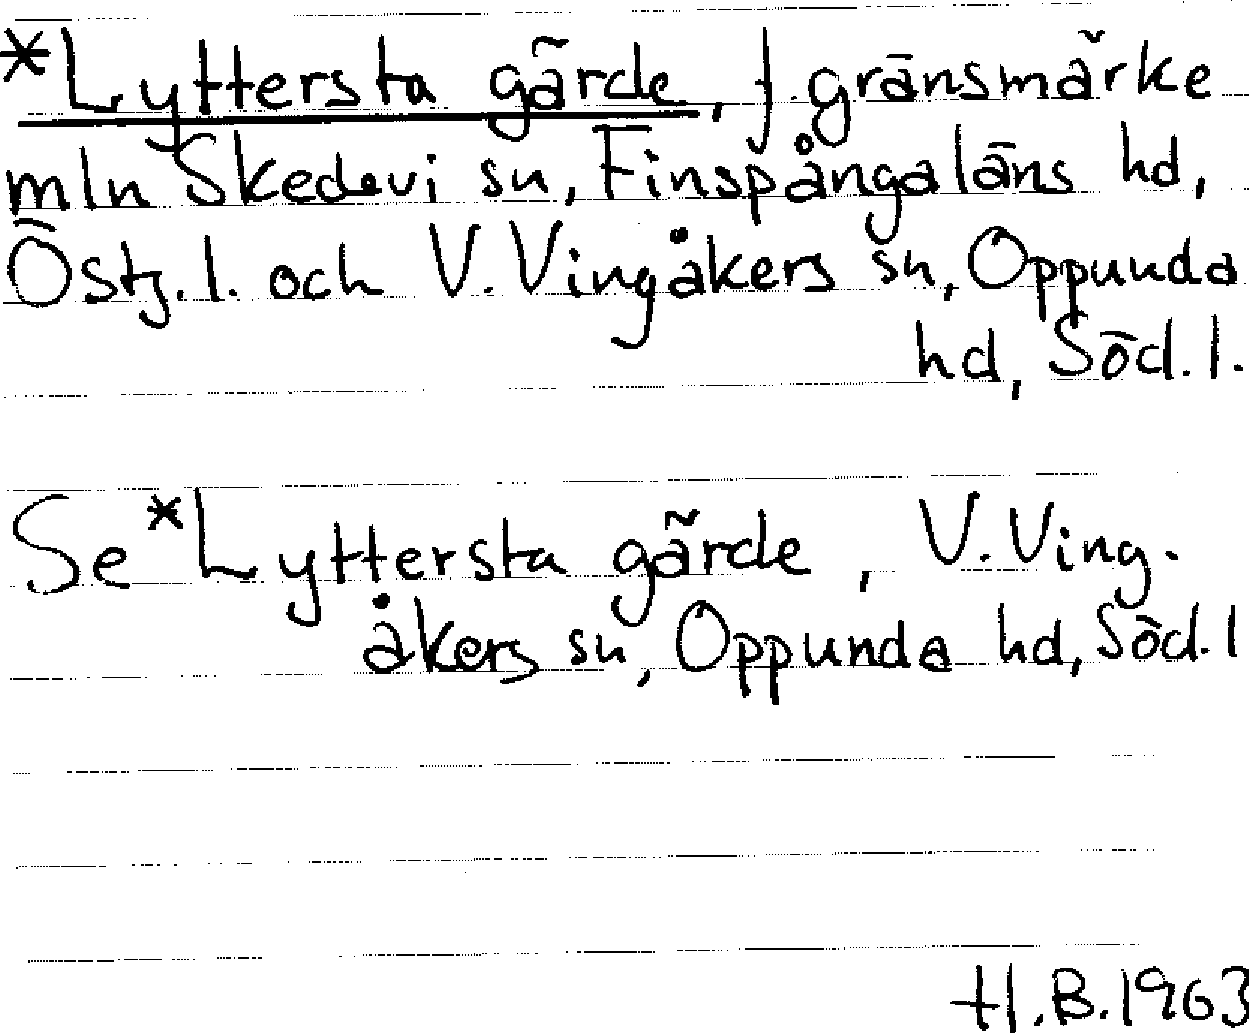 *Lyttersta gärde, f. gränsmärke
mln Skedevi sn, Finspångaläns hd,
Östg. l. och V. Vingåkers sn, Oppunda
hd, Söd. l.
Se *Lyttersta gärde, V. Ving-
åkers sn, Oppunda hd, Söd. l
H.B. 1963